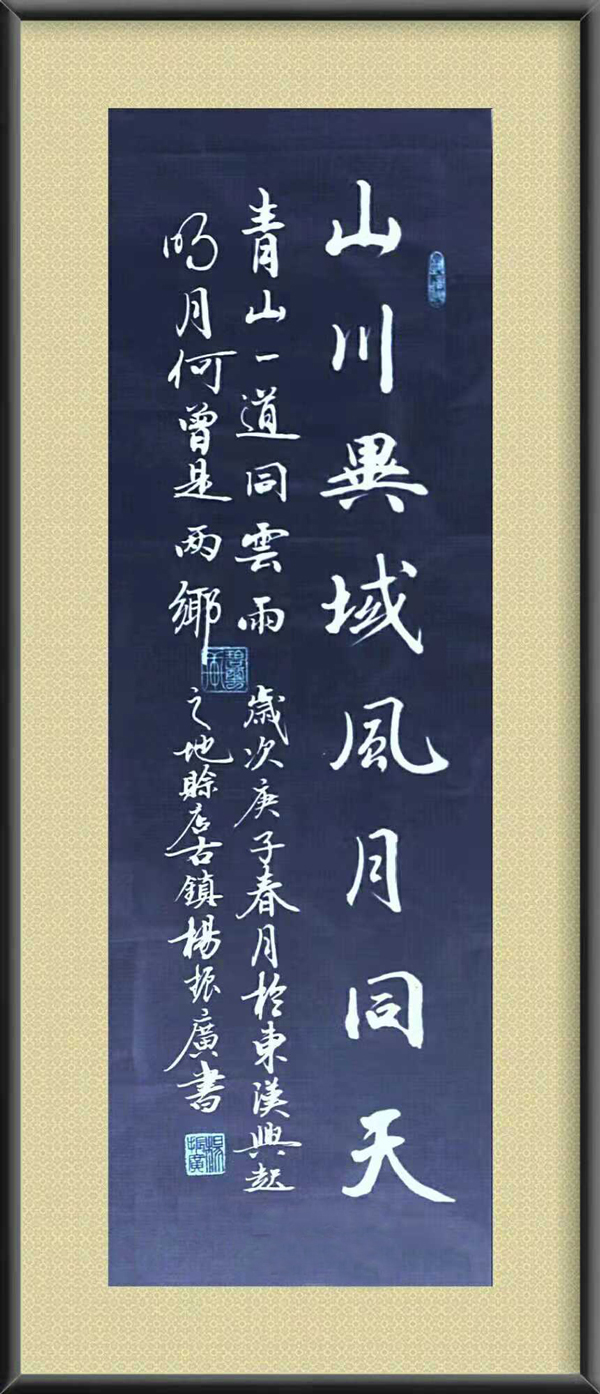 山川異域風月同天
青山一道同雲雨
明月何曾是兩鄉
歲次庚子春月於東漢興起
之地賒店古鎮楊振廣書
楊振廣